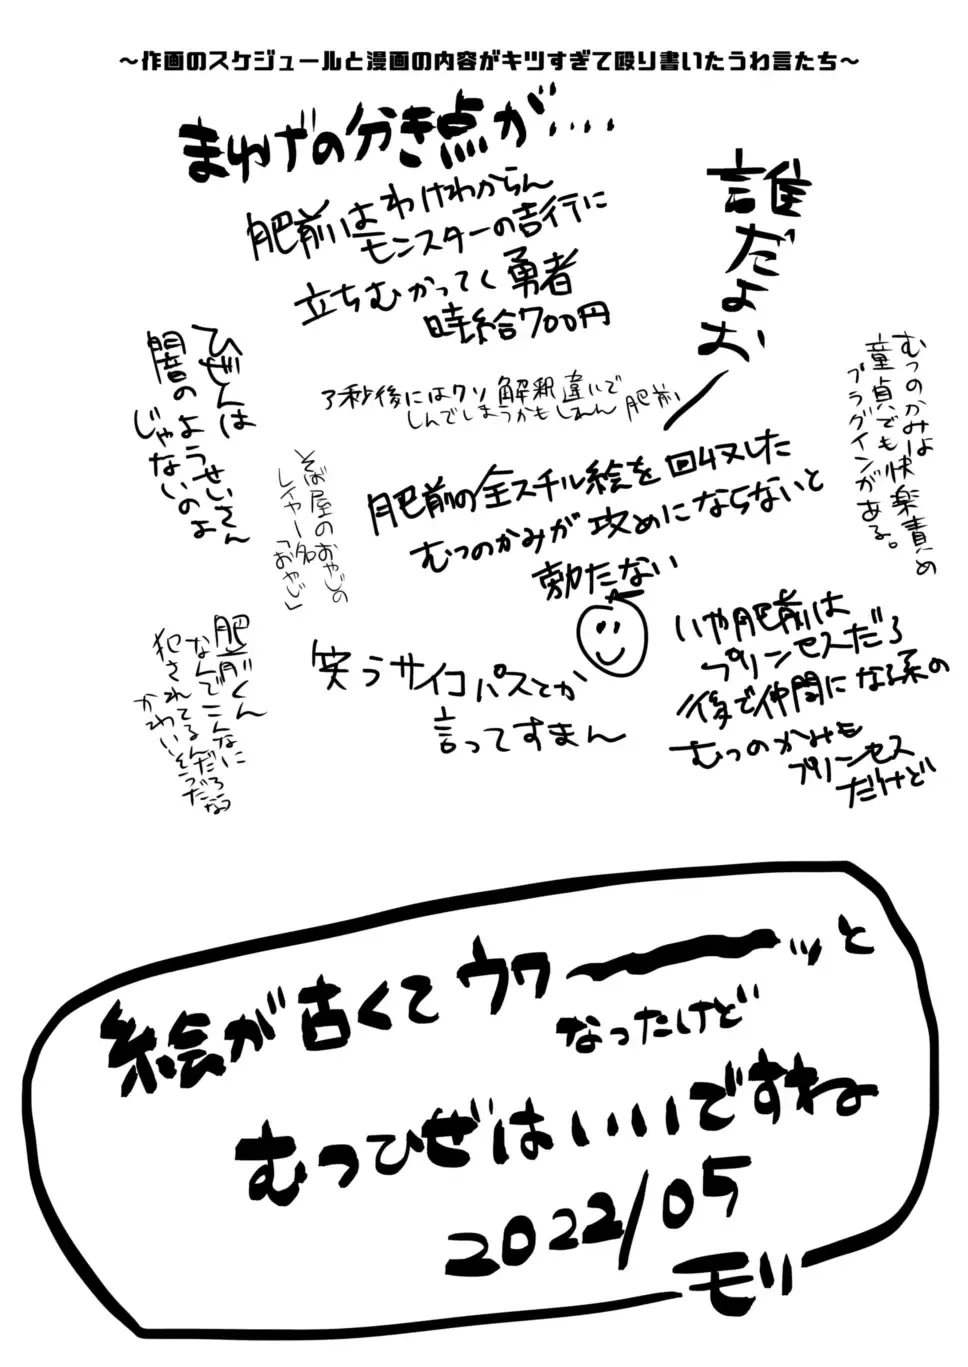 ～作画のスケジュールと漫画の内容がキツすぎて殴り書いたうわ言たち～
まゆげの分き点が‥‥
誰だよお／
肥前はわけわからん
モンスターの吉行に
立ちむかってく勇者
時給700円
ひぜんは
闇のようせいさん
じゃないのよ
3秒後にはクソ解釈違いで
しんでしまうかもしれん 肥前
むつのかみよ
童貞でも快楽責め
プラグインがある。
そば屋のおやじの
レイヤー名
「おやじ」
肥前の全スチル絵を回収した
むつのかみが攻めにならないと
勃たない
肥前くん
なんでこんなに
犯されてるんだろうな
かわいそうだな
笑うサイコパスとか
言ってすまん
いや肥前は
プリンセスだろ
後で仲間になる系の
むつのかみも
プリンセス
だけど
絵が古くてウワーーッと
なったけど
むつひぜはいいですね
2022/05
モリ